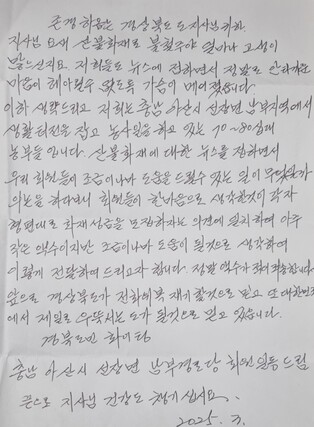 존경하옵는 경상북도 도지사님 귀하
지사님 요새 산불화재로 불철주야 얼마나 고생이
많으신지요 저희들도 뉴스에 접하면서 정말로 안타까운
마음이 헤아릴수 없도록 가슴이 메여졌습니다.
이하 생략드리고 저희는 충남 아산시 선장면 남부지역에서
생활터전을 잡고 농사일을 하고 있는 70~80십대
농부들 입니다. 산불화재에 대한 뉴스를 접하면서
우리 회원들이 조금이나마 도움을 드릴수 있는 일이 무엇일까
의논을 하다보니 회원들이 한마음으로 생각한것이 각자
형편대로 화재성금을 모집하자는 의견에 일치하여 아주
작은 액수이지만 조금이나마 도움이 될것으로 생각하여
이렇게 전달하여 드리고자 합니다. 정말 액수가 적어 죄송합니다
앞으로 경상북도가 전화위복 재기 할것으로 믿고 또 대한민국
에서 제일로 우뚝서는 도가 될것으로 믿고 있습니다.
경북도민 화이팅
충남 아산시 선장면 남부경로당 회원일동 드림
끝으로 지사님 건강도 챙기십시요.
2025. 3.